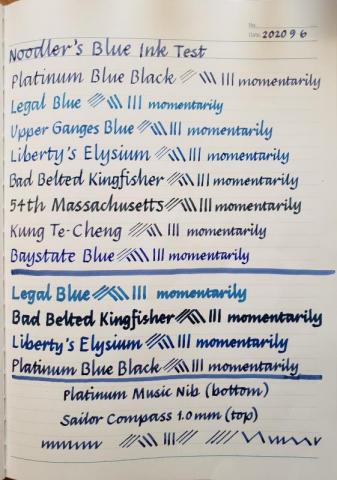 No.
Date 2020 9 6
Noodler's Blue Ink Test
Platinum Blue Black III momentarily
Legal Blue III momentarily
Upper Ganges Blue III momentarily
Liberty's Elysium III momentarily
Bad Belted Kingfisher III momentarily
54th Massachusetts III momentarily
Kung Te-Cheng III momentarily
Baystate Blue III momentarily
Legal Blue III momentarily
Bad Belted Kingfisher III momentarily
Liberty's Elysium III momentarily
Platinum Blue Black III momentarily
Platinum Music Nib (bottom)
Sailor Compass 1.0mm (top)